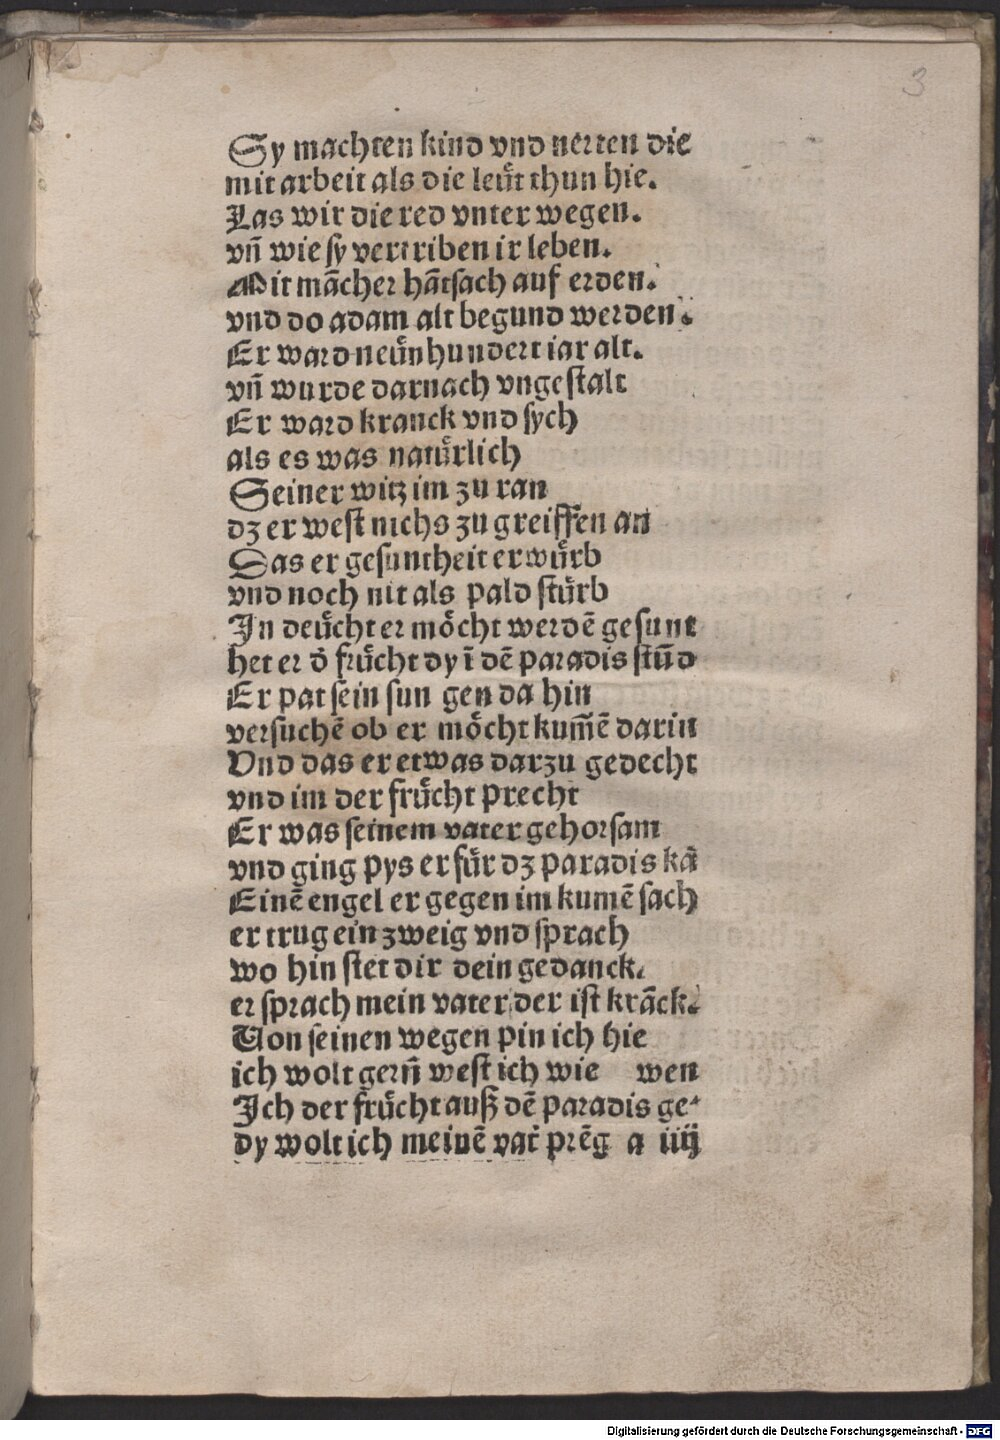 3
Sy machten kind vnd nerten die
mit arbeit als die leuͤt thun hie.
Las wir die red vnter wegen.
vñ wie sy vertriben ir leben.
Mit mācher hātsach auf erden.
vnd do adam alt begund werden.
Er ward neuͤnhundert iar alt.
vñ wurde darnach vngestalt
Er ward kranck vnd sych
als es was natuͤrlich
Seiner witz im zu ran
dz er west nichs zu greiffen an
Das er gesuntheit erwuͤrb
vnd noch nit als pald stuͤrb
In deuͤcht er moͤcht werdē gesunt
het er d̓ fruͤcht dy ī dē paradis stūd
Er pat sein sun gen da hin
versuchē ob er moͤcht kum̄ē darin
Vnd das er etwas darzu gedecht
vnd im der fruͤcht precht
Er was seinem vater gehorsam
vnd ging pys er fuͤr dz paradis kā
Einē engel er gegen im kumē sach
er trug ein zweig vnd sprach
wo hin stet dir dein gedanck.
er sprach mein vater der ist krāck.
Von seinen wegen pin ich hie
ich wolt gern̄ west ich wie wen
Ich der fruͤcht auß dē paradis ge-
dy wolt ich meinē vat̓ prēg a iiij
Digitalisierung gefördert durch die Deutsche Forschungsgemeinschaft - DFG